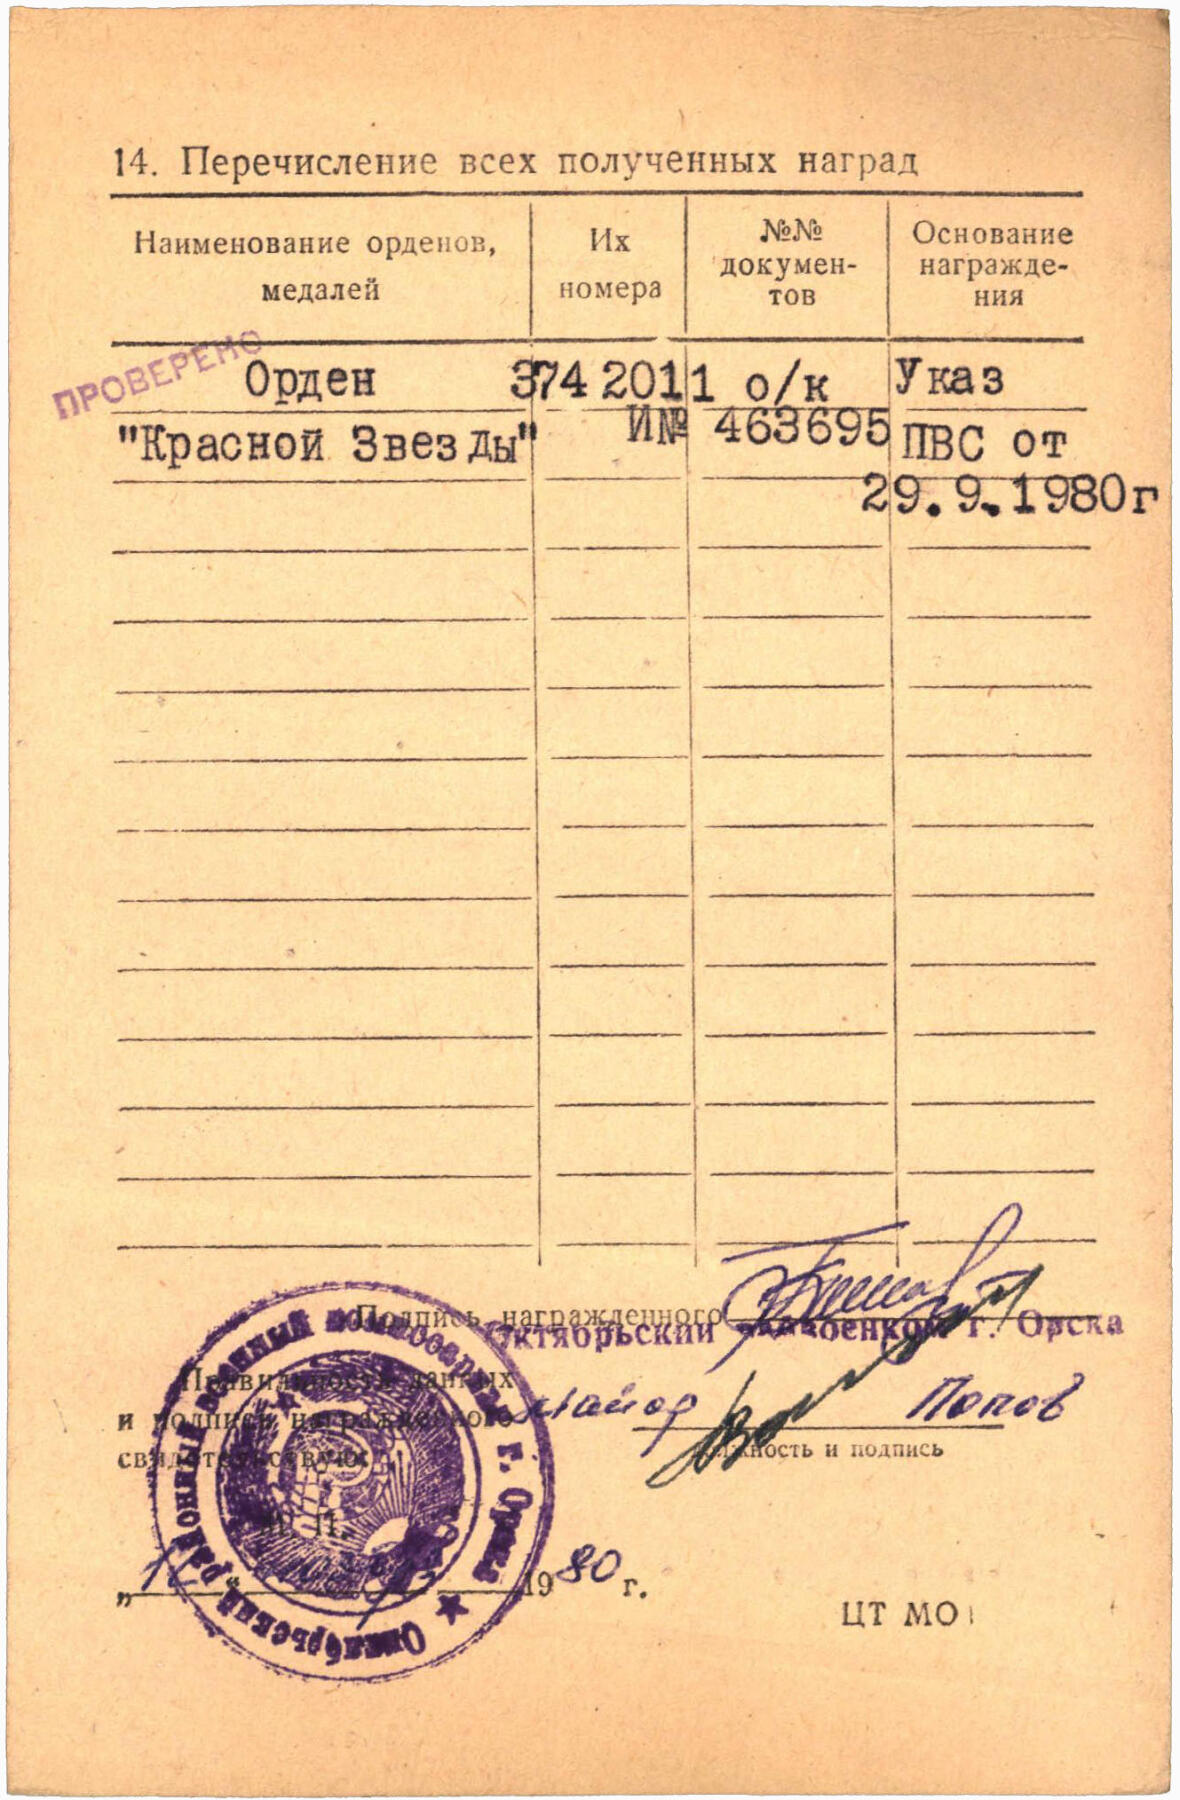 14. Перечисление всех полученных наград
Наименование орденов,
медалей
Их
номера
№№
докумен-
тов
Основание
награжде-
ния
ПРОВЕРЕНО
Орден 374 2011 о/к Указ
"Красной Звезды" И№ 463695 ПВС от
29.9.1980г
Подпись награжденного
Октябрьский военком г. Орска
Правильность данных
и подпись награжденного
свидетельствую.
майор Попов
должность и подпись
М. П.
1980 г.
ЦТ МО
Октябрьский районный военный комиссариат г. Орска